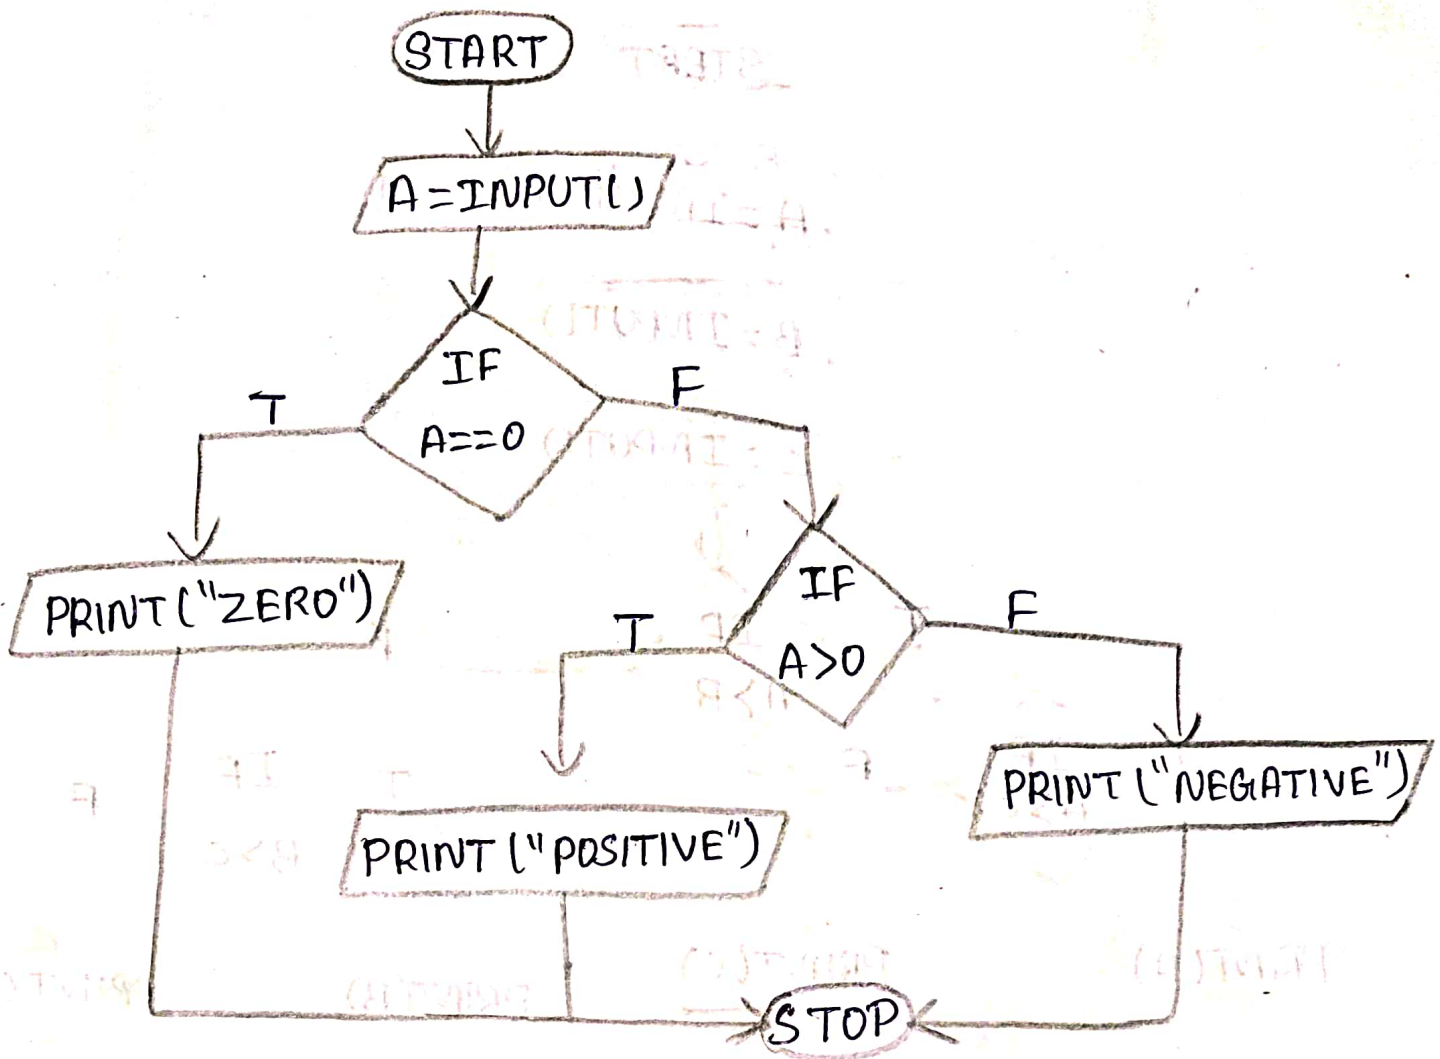 START
A=INPUT()
IF
A==0
T
F
PRINT("ZERO")
IF
A>0
T
F
PRINT("POSITIVE")
PRINT("NEGATIVE")
STOP